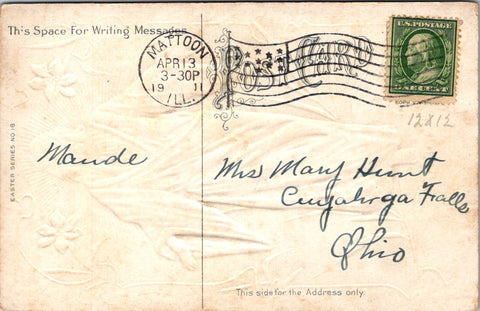 This Space For Writing Messages
MATTOON
APR 13
3-30P
19 11
ILL.
POST CARD
U.S. POSTAGE
ONE CENT
12x12
EASTER SERIES NO. 18.
Maude
Mrs Mary Hunt
Cuyahoga Falls
Ohio
This side for the Address only.